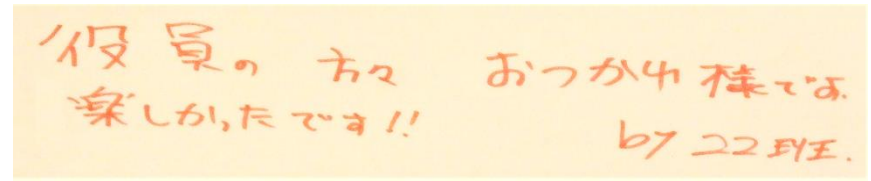 役員の 方々 おつかれ様です.
楽しかったです!!
by 22班.